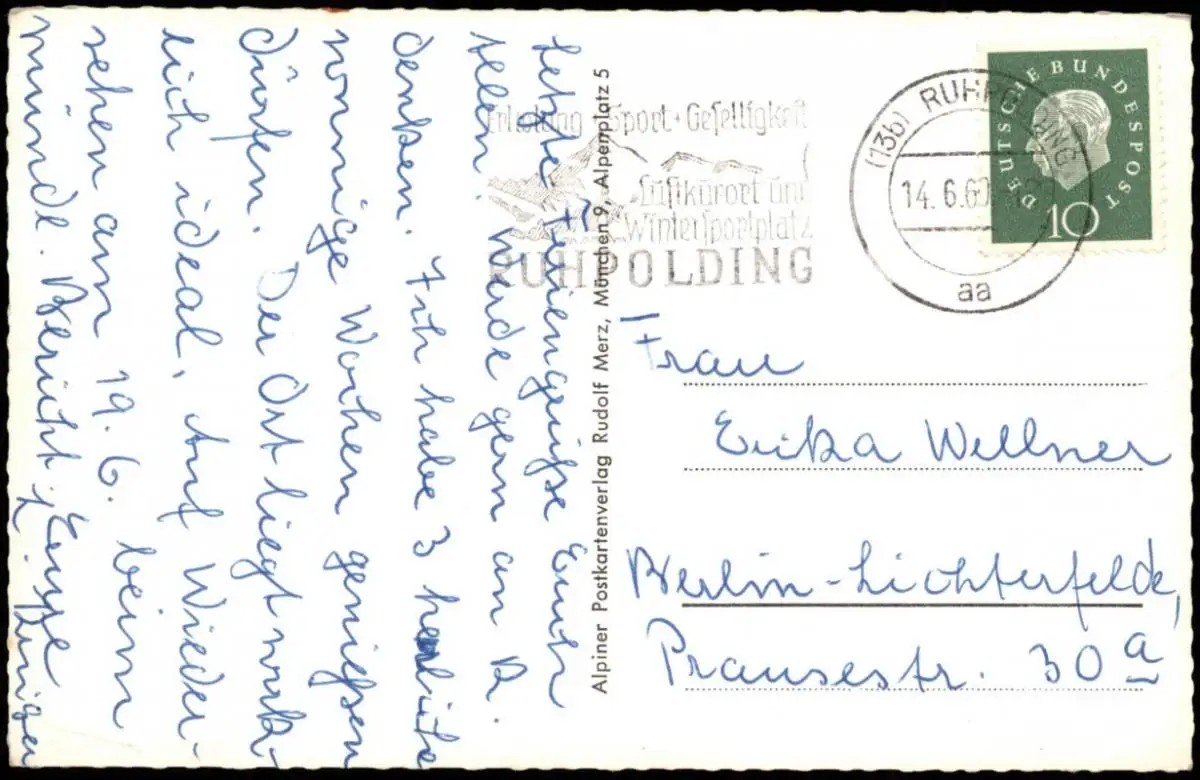 Letzte Feriengrüße Euch
Allen. Würde gern an R.
denken. Ich habe 3 herrliche
sonnige Wochen genießen
dürfen. Der Ort liegt wirk-
lich ideal. Auf Wieder-
sehen am 19. 6. beim
mündl. Bericht! Eure
Alpiner Postkartenverlag Rudolf Merz, München 9, Alpenplatz 5
Erholung + Sport + Geselligkeit
Luftkurort und
Wintersportplatz
RUHPOLDING
(13b) RUHPOLDING
14. 6. 60
aa
DEUTSCHE BUNDESPOST
10
Frau
Erika Wellner
Berlin-Lichterfelde,
Prausestr. 30 a